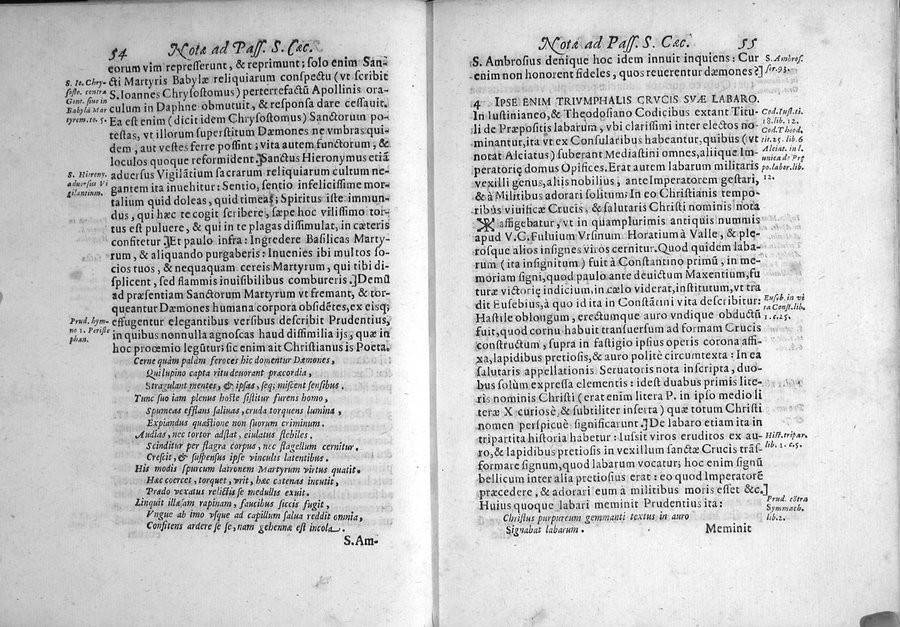 54 Notæ ad Pass. S. Cæc.
eorum vim represserunt, & reprimunt; solo enim San-
cti Martyris Babylæ reliquiarum conspectu (vt scribit
S. Ioannes Chrysostomus) perterrefactū Apollinis ora-
culum in Daphne obmutuit, & responsa dare cessauit.
Ea est enim (dicit idem Chrysostomus) Sanctorum po-
testas, vt illorum superstitum Dæmones ne vmbras qui-
dem, aut vestes ferre possint; vita autem functorum, &
loculos quoque reformident.]Sanctus Hieronymus etiā
aduersus Vigilātium sacrarum reliquiarum cultum ne-
gantem ita inuehitur: Sentio, sentio infelicissime mor-
talium quid doleas, quid timeas; Spiritus iste immun-
dus, qui hæc te cogit scribere, sæpe hoc vilissimo tor-
tus est puluere, & qui in te plagas dissimulat, in cæteris
confitetur.]Et paulo infra: Ingredere Basilicas Marty-
rum, & aliquando purgaberis: Inuenies ibi multos so-
cios tuos, & nequaquam cereis Martyrum, qui tibi di-
splicent, sed flammis inuisibilibus combureris.]Demū
ad præsentiam Sanctorum Martyrum vt fremant, & tor-
queantur Dæmones humana corpora obsidētes, ex eisq;
effugentur elegantibus versibus describit Prudentius,
in quibus nonnulla agnoscas haud dissimilia ijs, quæ in
hoc proœmio legūtur; sic enim ait Christianus is Poeta.
Cerne quàm palàm feroces hic domentur Dæmones,
Qui lupino capta ritu deuorant præcordia,
Strangulant mentes, & ipsas, seq; miscent sensibus.
Tunc suo iam plenus hoste sistitur furens homo,
Spumeas efflans saliuas, cruda torquens lumina,
Expiandus quæstione non suorum criminum.
Audias, nec tortor adstat, eiulatus flebiles.
Scinditur per flagra corpus, nec flagellum cernitur.
Crescit, & suspensus ipse vinculis latentibus.
His modis spurcum latronem Martyrum virtus quatit.
Hæc coercet, torquet, vrit, hæc catenas incutit,
Prædo vexatus relictis se medullis exuit.
Linquit illæsam rapinam, faucibus siccis fugit,
Vngue ab imo vsque ad capillum salua reddit omnia,
Confitens ardere se se, nam gehennæ est incola.
S. Am-
S. Io. Chry-
sosto. contra
Gent. siue in
Babylā Mar
tyrem. to. 5.
S. Hierony.
aduersus Vi
gilantium.
Prud. hym-
no 1. Periste
phan.
Notæ ad Pass. S. Cæc. 55
S. Ambrosius denique hoc idem innuit inquiens: Cur
enim non honorent fideles, quos reuerentur dæmones?]
4 IPSE ENIM TRIVMPHALIS CRVCIS SVÆ LABARO.
In Iustinianeo, & Theodosiano Codicibus extant Titu-
li de Præpositis labarum, vbi clarissimi inter electos no
minantur, ita vt ex Consularibus habeantur, quibus (vt
notat Alciatus) suberant Mediastini omnes, aliique Im-
peratoriæ domus Opifices. Erat autem labarum militaris
vexilli genus, alijs nobilius, ante Imperatorem gestari,
& à Militibus adorari solitum: In eo Christianis tempo-
ribus viuificæ Crucis, & salutaris Christi nominis nota
affigebatur, vt in quamplurimis antiquis nummis
apud V.C. Fuluium Vrsinum. Horatium à Valle, & ple-
rosque alios insignes viros cernitur. Quod quidem laba-
rum (ita insignitum) fuit à Constantino primū, in me-
moriam signi, quod paulo ante deuictum Maxentium, fu
turæ victoriæ indicium, in cælo viderat, institutum, vt tra
dit Eusebius, à quo id ita in Constātini vita describitur:
Hastile oblongum, erectumque auro vndique obductū
fuit, quod cornu habuit transuersum ad formam Crucis
constructum, supra in fastigio ipsius operis corona affi-
xa, lapidibus pretiosis, & auro politè circumtexta: In ea
salutaris appellationis Seruatoris nota inscripta, duo-
bus solùm expressa elementis: idest duabus primis lite-
ris nominis Christi (erat enim litera P. in ipso medio li
teræ X curiosè, & subtiliter inserta) quæ totum Christi
nomen perspicuè significarunt.]De labaro etiam ita in
tripartita historia habetur: Iussit viros eruditos ex au-
ro, & lapidibus pretiosis in vexillum sanctæ Crucis trās-
formare signum, quod labarum vocatur; hoc enim signū
bellicum inter alia pretiosius erat: eo quod Imperatorē
præcedere, & adorari eum à militibus moris esset &c.]
Huius quoque labari meminit Prudentius ita:
Christus purpureum gemmanti textus in auro
Signabat labarum.
Meminit
S. Ambros.
ser. 93.
Cod. Iust. ti.
18. lib. 12.
Cod. Theod.
tit. 25. lib. 6
Alciat. in l.
vnica de Præ
po. labor. lib.
12.
Euseb. in vi
ta Const. lib.
1. c. 25.
Hist. tripar.
lib. 1. c. 5.
Prud. cōtra
Symmach.
lib. 2.